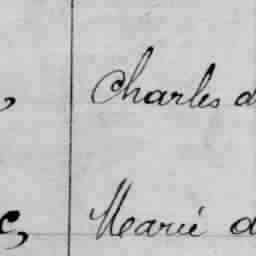 , Charles d
c, Marie d